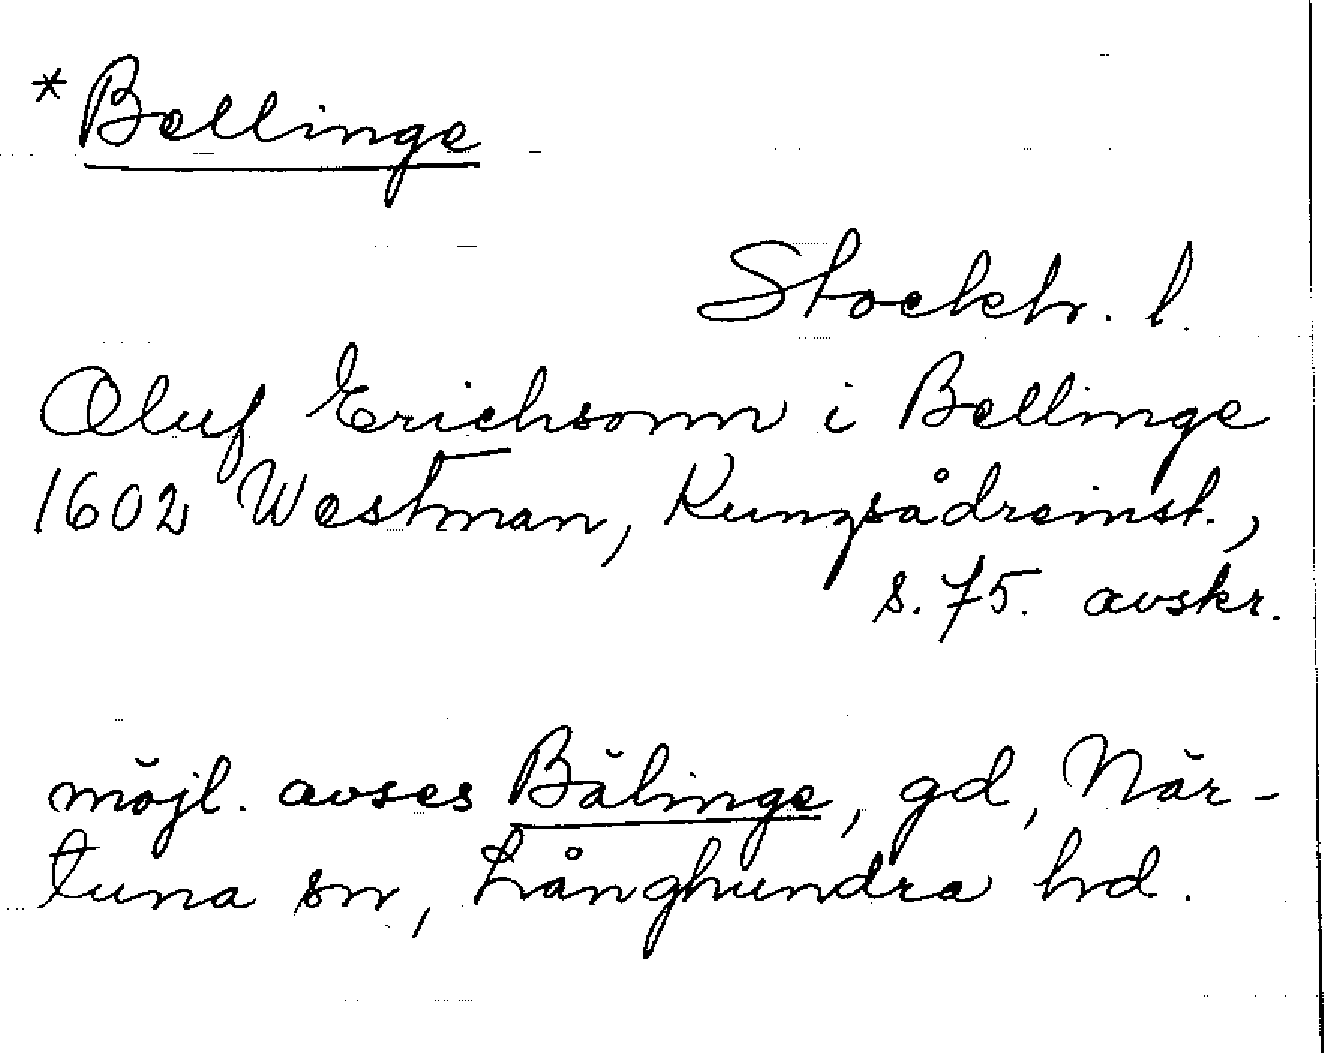 *Bellinge
Stockh. l.
Oluf Erichsonn i Bellinge
1602 Westman, Kungsådreinst.,
s. 75. avskr.
möjl. avses Bälinge, gd, När-
tuna sn, Långhundra hd.